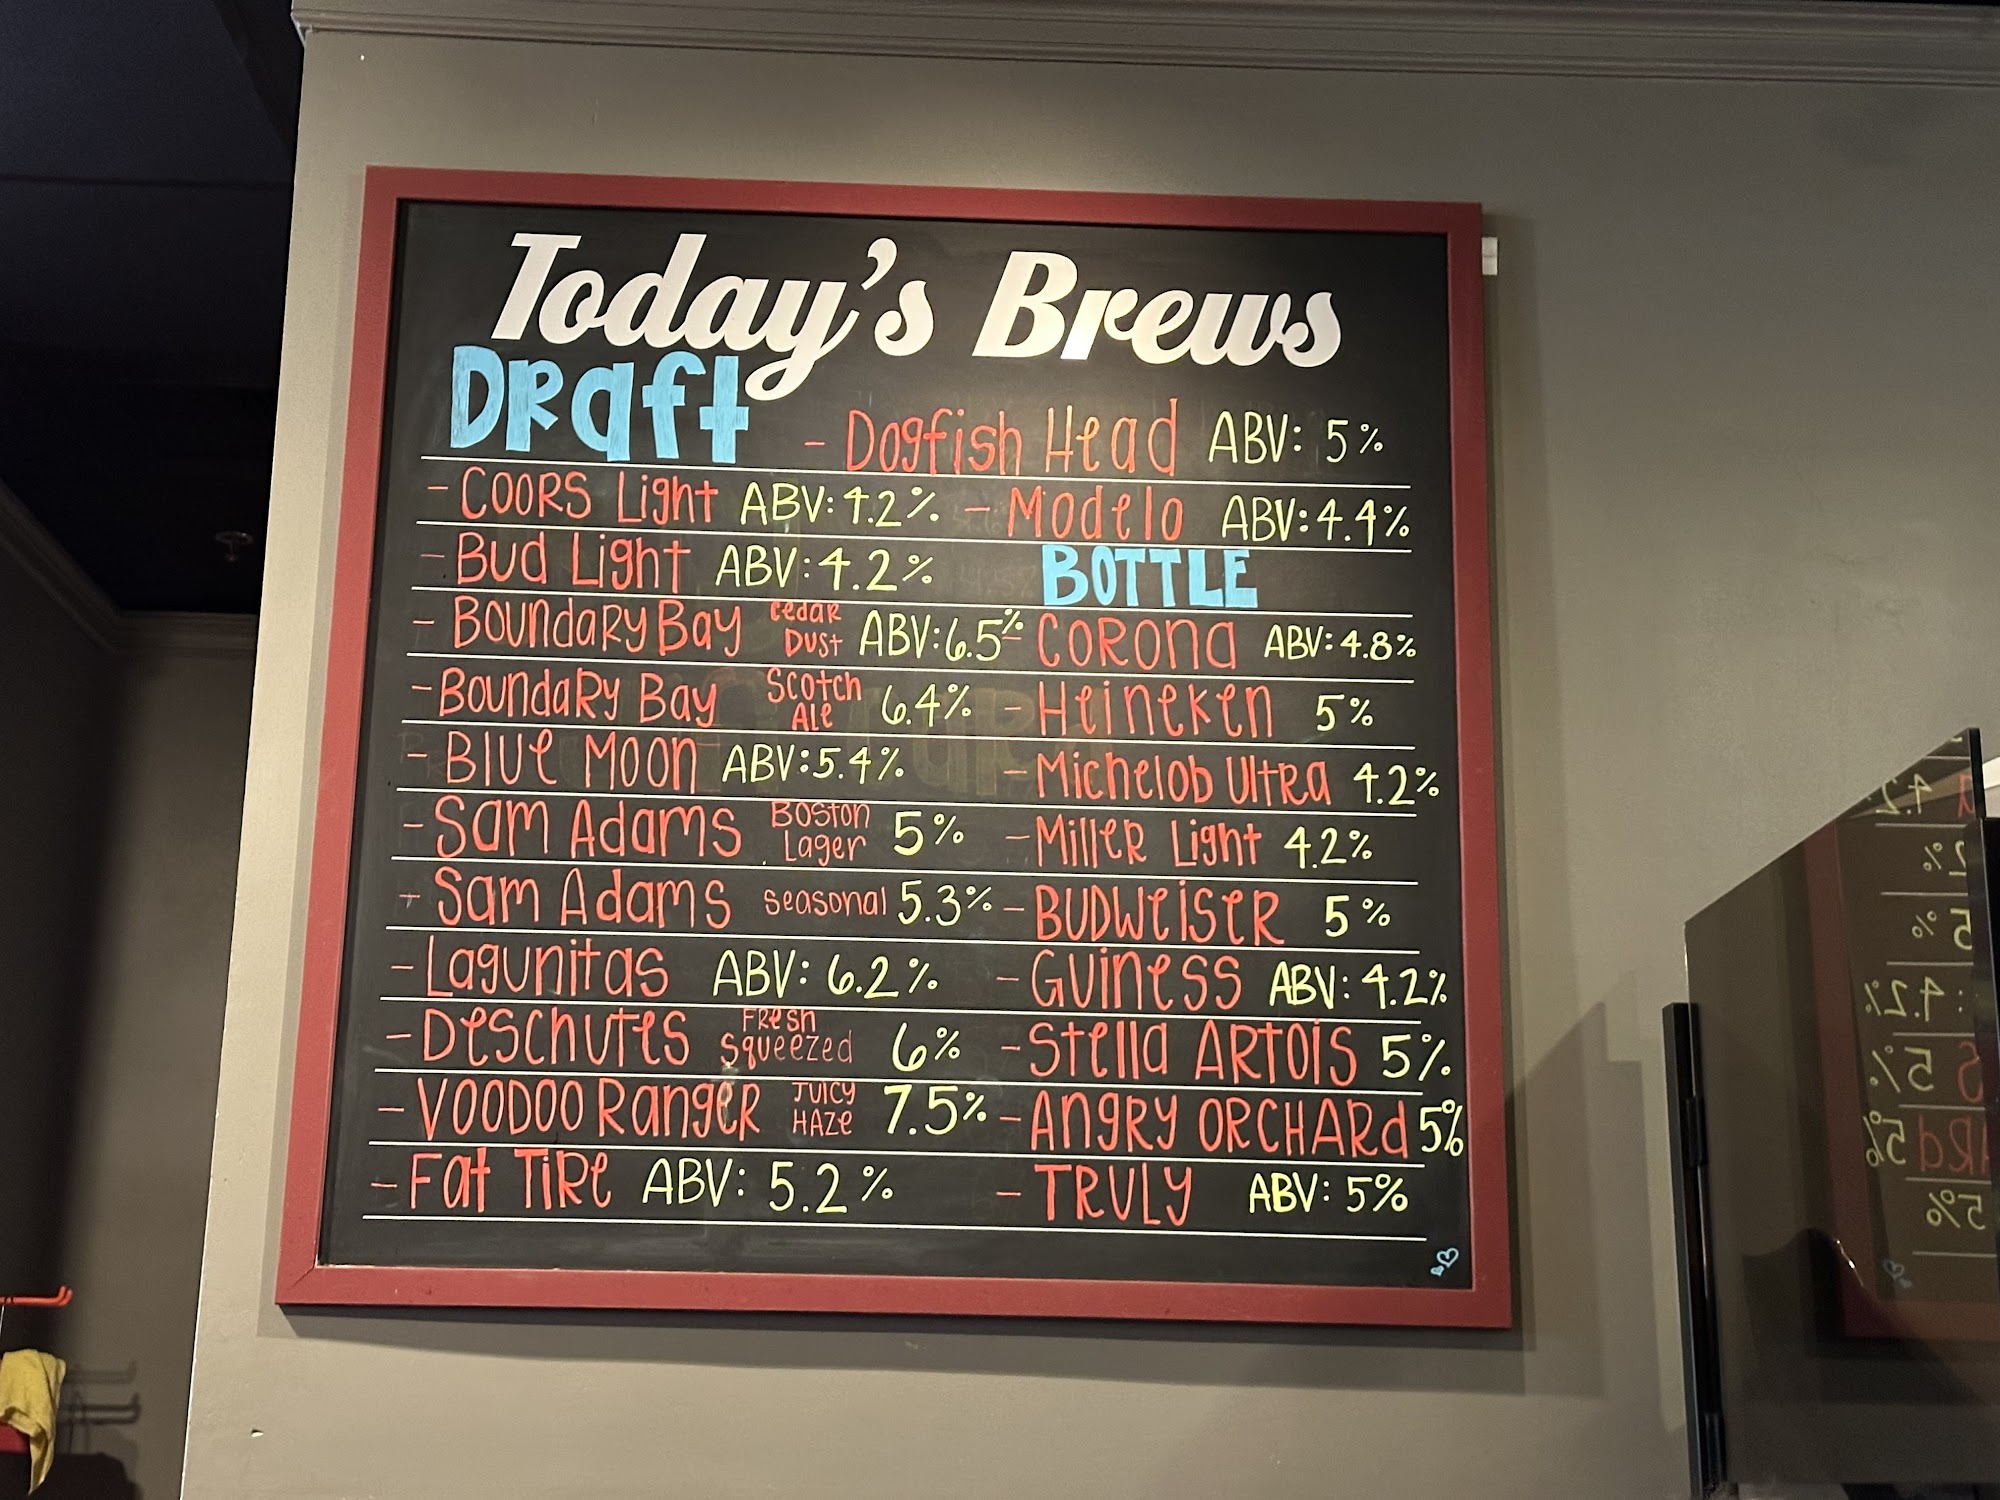 Today's Brews
Draft
- Coors Light ABV: 4.2%
- Bud Light ABV: 4.2%
- Boundary Bay Cedar Dust ABV: 6.5%
- Boundary Bay Scotch Ale 6.4%
- Blue Moon ABV: 5.4%
- Sam Adams Boston Lager 5%
- Sam Adams seasonal 5.3%
- Lagunitas ABV: 6.2%
- Deschutes Fresh Squeezed 6%
- Voodoo Ranger Juicy Haze 7.5%
- Fat Tire ABV: 5.2%
- Dogfish Head ABV: 5%
- Modelo ABV: 4.4%
BOTTLE
- Corona ABV: 4.8%
- Heineken 5%
- Michelob Ultra 4.2%
- Miller Light 4.2%
- Budweiser 5%
- Guiness ABV: 4.2%
- Stella Artois 5%
- Angry Orchard 5%
- TRULY ABV: 5%